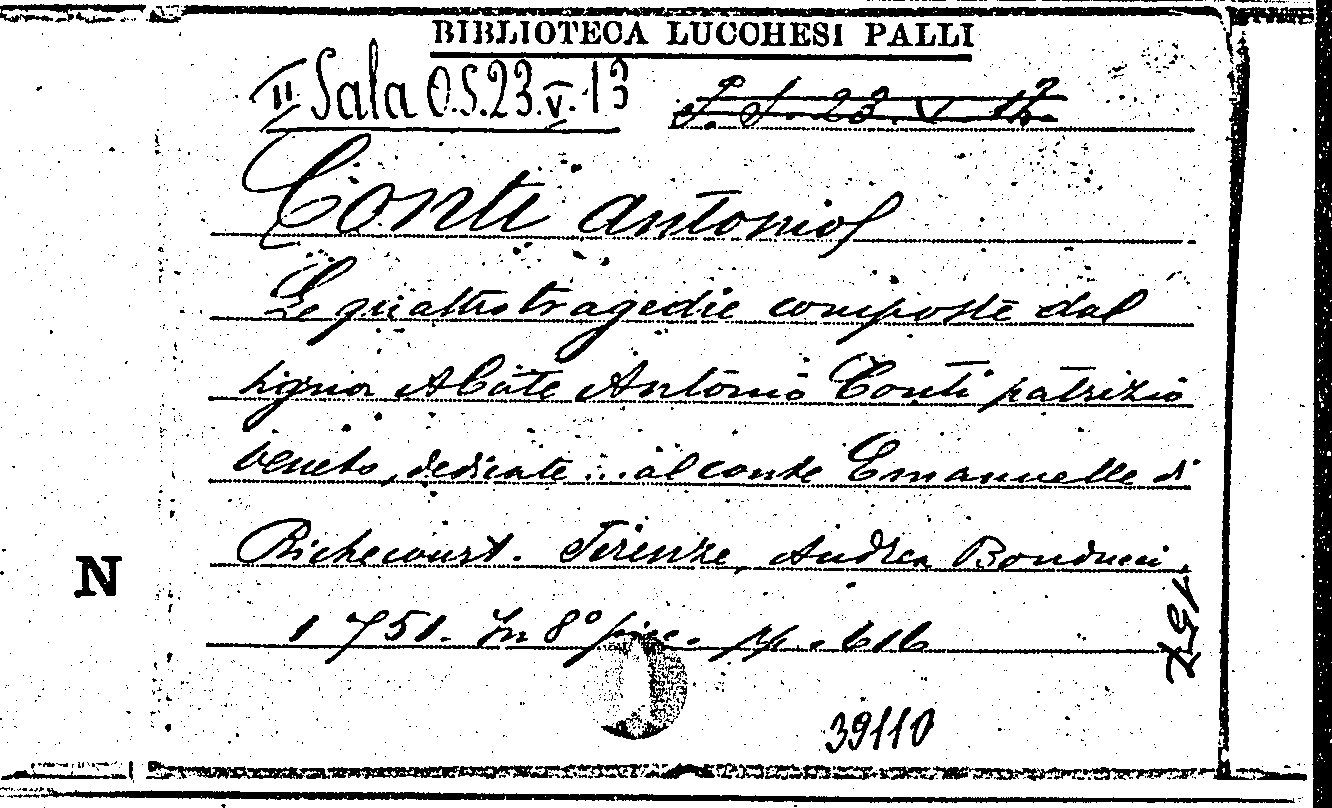 BIBLIOTECA LUCCHESI PALLI
II Sala O.S.23.V.13
Conti Antonio
Le quattro tragedie composte dal
signor Abate Antonio Conti patrizio
veneto, dedicate ... al conte Emanuelle di
Richecourt. Firenze, Andrea Bonducci,
1751. In 8° picc. pp. 616
N
39110